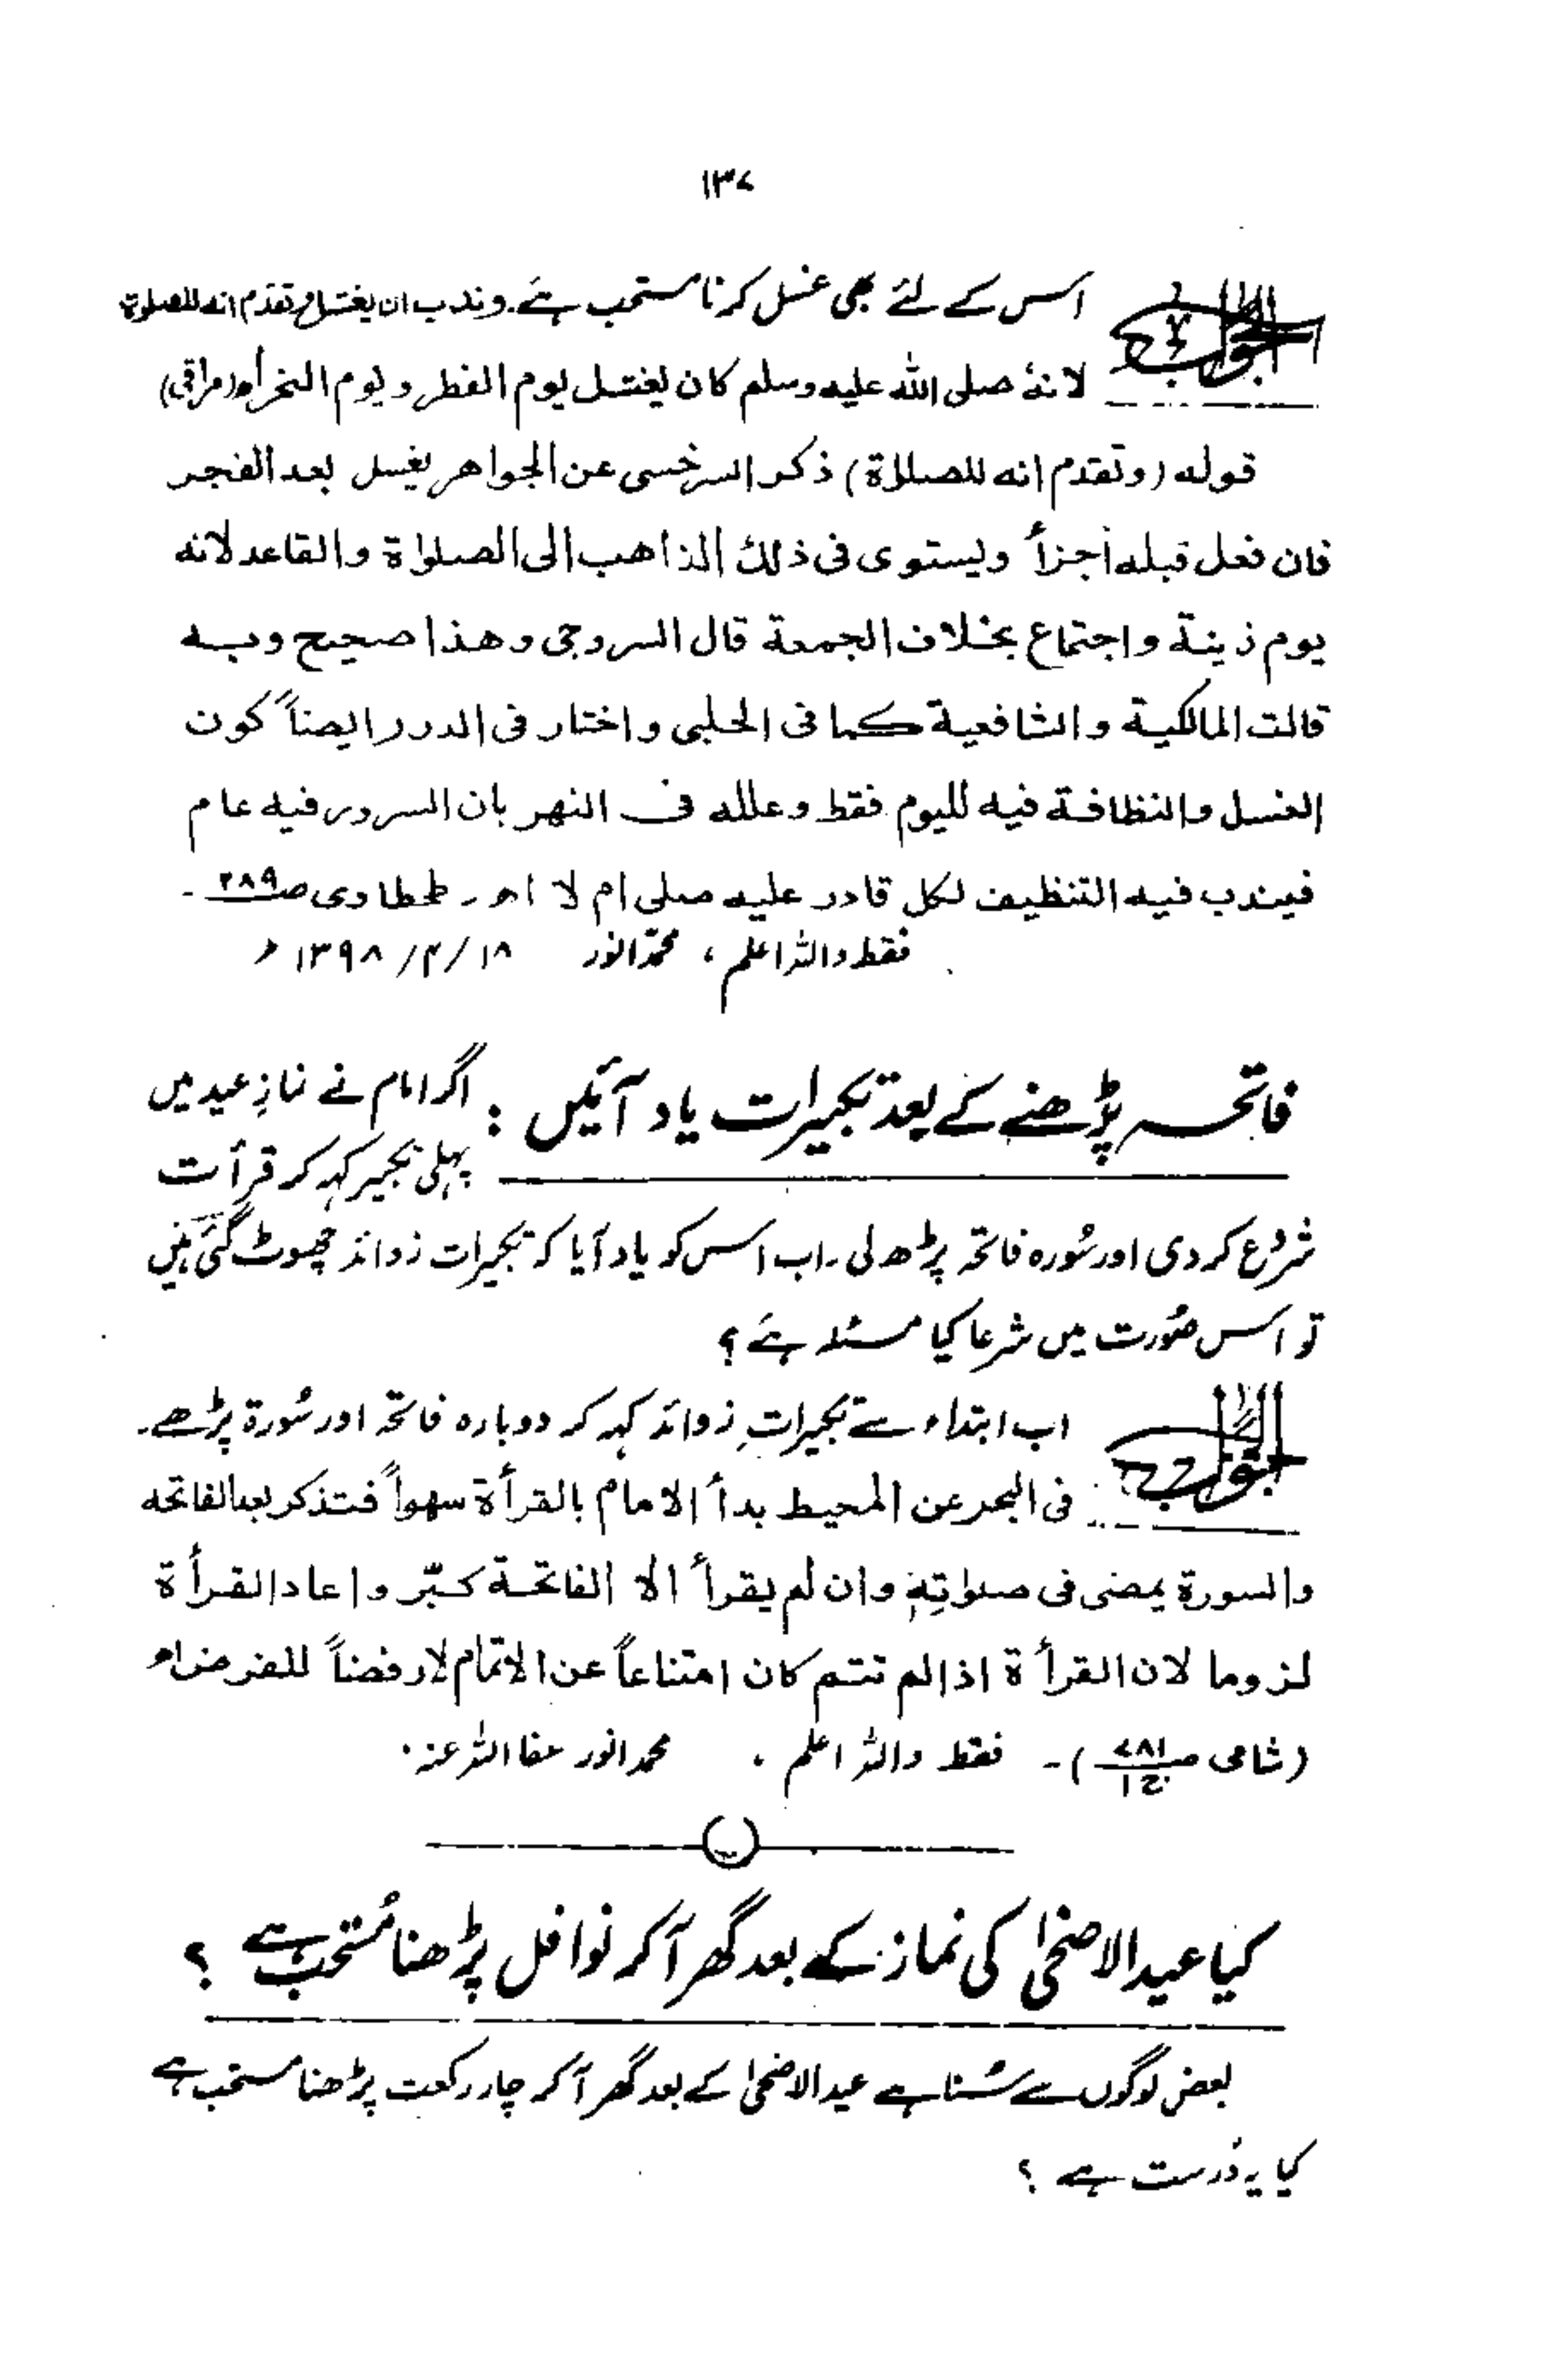 ۱۳۷
الجواب اس کے لئے بھی غسل کرنا مستحب ہے۔ وندب ان یغتسل وتقدم انہ للصلوة
لانہٗ صلی اللہ علیہ وسلم کان یغتسل یوم الفطر و یوم النحر اھ (مراقی)
قوله (وتقدم انه للصلاة) ذکر السرخسی عن الجواهر یغسل بعد الفجر
فان فعل قبله اجزأ ویستوی فی ذلك الذاهب الی الصلوٰة والقاعد لانه
یوم زینة واجتماع بخلاف الجمعة قال السروجی وهذا صحیح وبه
قالت المالکیة والشافعیة کما فی الحلبی واختار فی الدرر ایضاً کون
الغسل والنظافة فیه للیوم فقط وعلله فی النهر بان السرور فیه عام
فیندب فیه التنظیف لکل قادر علیه صلی ام لا اھ۔ طحطاوی ص۲۸۹۔
فقط واللہ اعلم، محمد انور ۱۸/۴/۱۳۹۸ھ
فاتحہ پڑھنے کے بعد تکبیرات یاد آئیں : اگر امام نے نمازِ عید میں
پہلی تکبیر کہہ کر قرأت
شروع کر دی اور سُورہ فاتحہ پڑھ لی۔ اب اس کو یاد آیا کہ تکبیرات زوائد چھوٹ گئی ہیں
تو اس صُورت میں شرعا کیا مسئلہ ہے؟
الجواب اب ابتداء سے تکبیراتِ زوائد کہہ کر دوبارہ فاتحہ اور سُورة پڑھے۔
فی البحر عن المحیط بدأ الامام بالقرأة سهواً فتذکر بعد الفاتحه
والسورة یمضی فی صلوٰتهٖ وان لم یقرأ الا الفاتحة کبّر واعاد القرأة
لزوما لان القرأة اذا لم تتم کان امتناعاً عن الاتمام لا رفضاً للفرض اھ
(شامی ص۷۸۱ ج۱)۔ فقط واللہ اعلم، محمد انور عفا اللہ عنہ۔
کیا عید الاضحیٰ کی نماز کے بعد گھر آ کر نوافل پڑھنا مُستحب ہے ؟
بعض لوگوں سے سُنا ہے عید الاضحیٰ کے بعد گھر آ کر چار رکعت پڑھنا مستحب ہے
کیا یہ دُرست ہے ؟